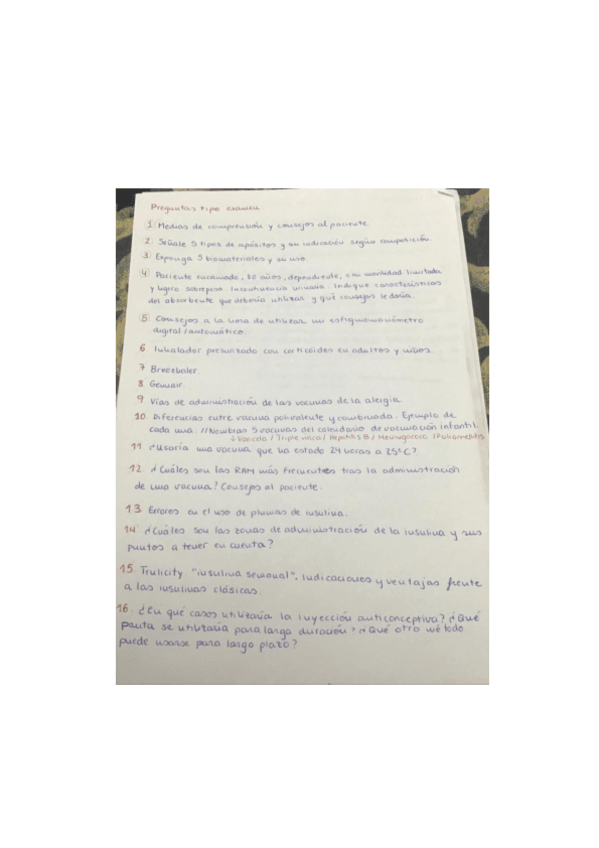 Preguntas tipo examen
1 Medias de compresión y consejos al paciente.
2. Señale 5 tipos de apósitos y su indicación según composición.
3 Exponga 5 biomateriales y su uso.
4 Paciente encamado, 80 años, dependiente, con movilidad limitada
y ligero sobrepeso. Incontinencia urinaria. Indique características
del absorbente que debería utilizar y qué consejos le daría.
5 Consejos a la hora de utilizar un esfigmomanómetro
digital/automático.
6 Inhalador presurizado con corticoides en adultos y niños.
7 Breezhaler.
8 Genuair.
9 Vías de administración de las vacunas de la alergia.
10. Diferencias entre vacuna polivalente y combinada. Ejemplo de
cada una. // Nombras 5 vacunas del calendario de vacunación infantil.
↓ Varicela / Triple vírica / Hepatitis B / Meningococo / Poliomielitis
11 ¿Usaría una vacuna que ha estado 24 horas a 25ºC?
12. ¿Cuáles son las RAM más frecuentes tras la administración
de una vacuna? Consejos al paciente.
13 Errores en el uso de plumas de insulina.
14 ¿Cuáles son las zonas de administración de la insulina y sus
puntos a tener en cuenta?
15. Trulicity "insulina semanal". Indicaciones y ventajas frente
a las insulinas clásicas.
16. ¿En qué casos utilizaría la inyección anticonceptiva? ¿Qué
pauta se utilizaría para larga duración? ¿Qué otro método
puede usarse para largo plazo?